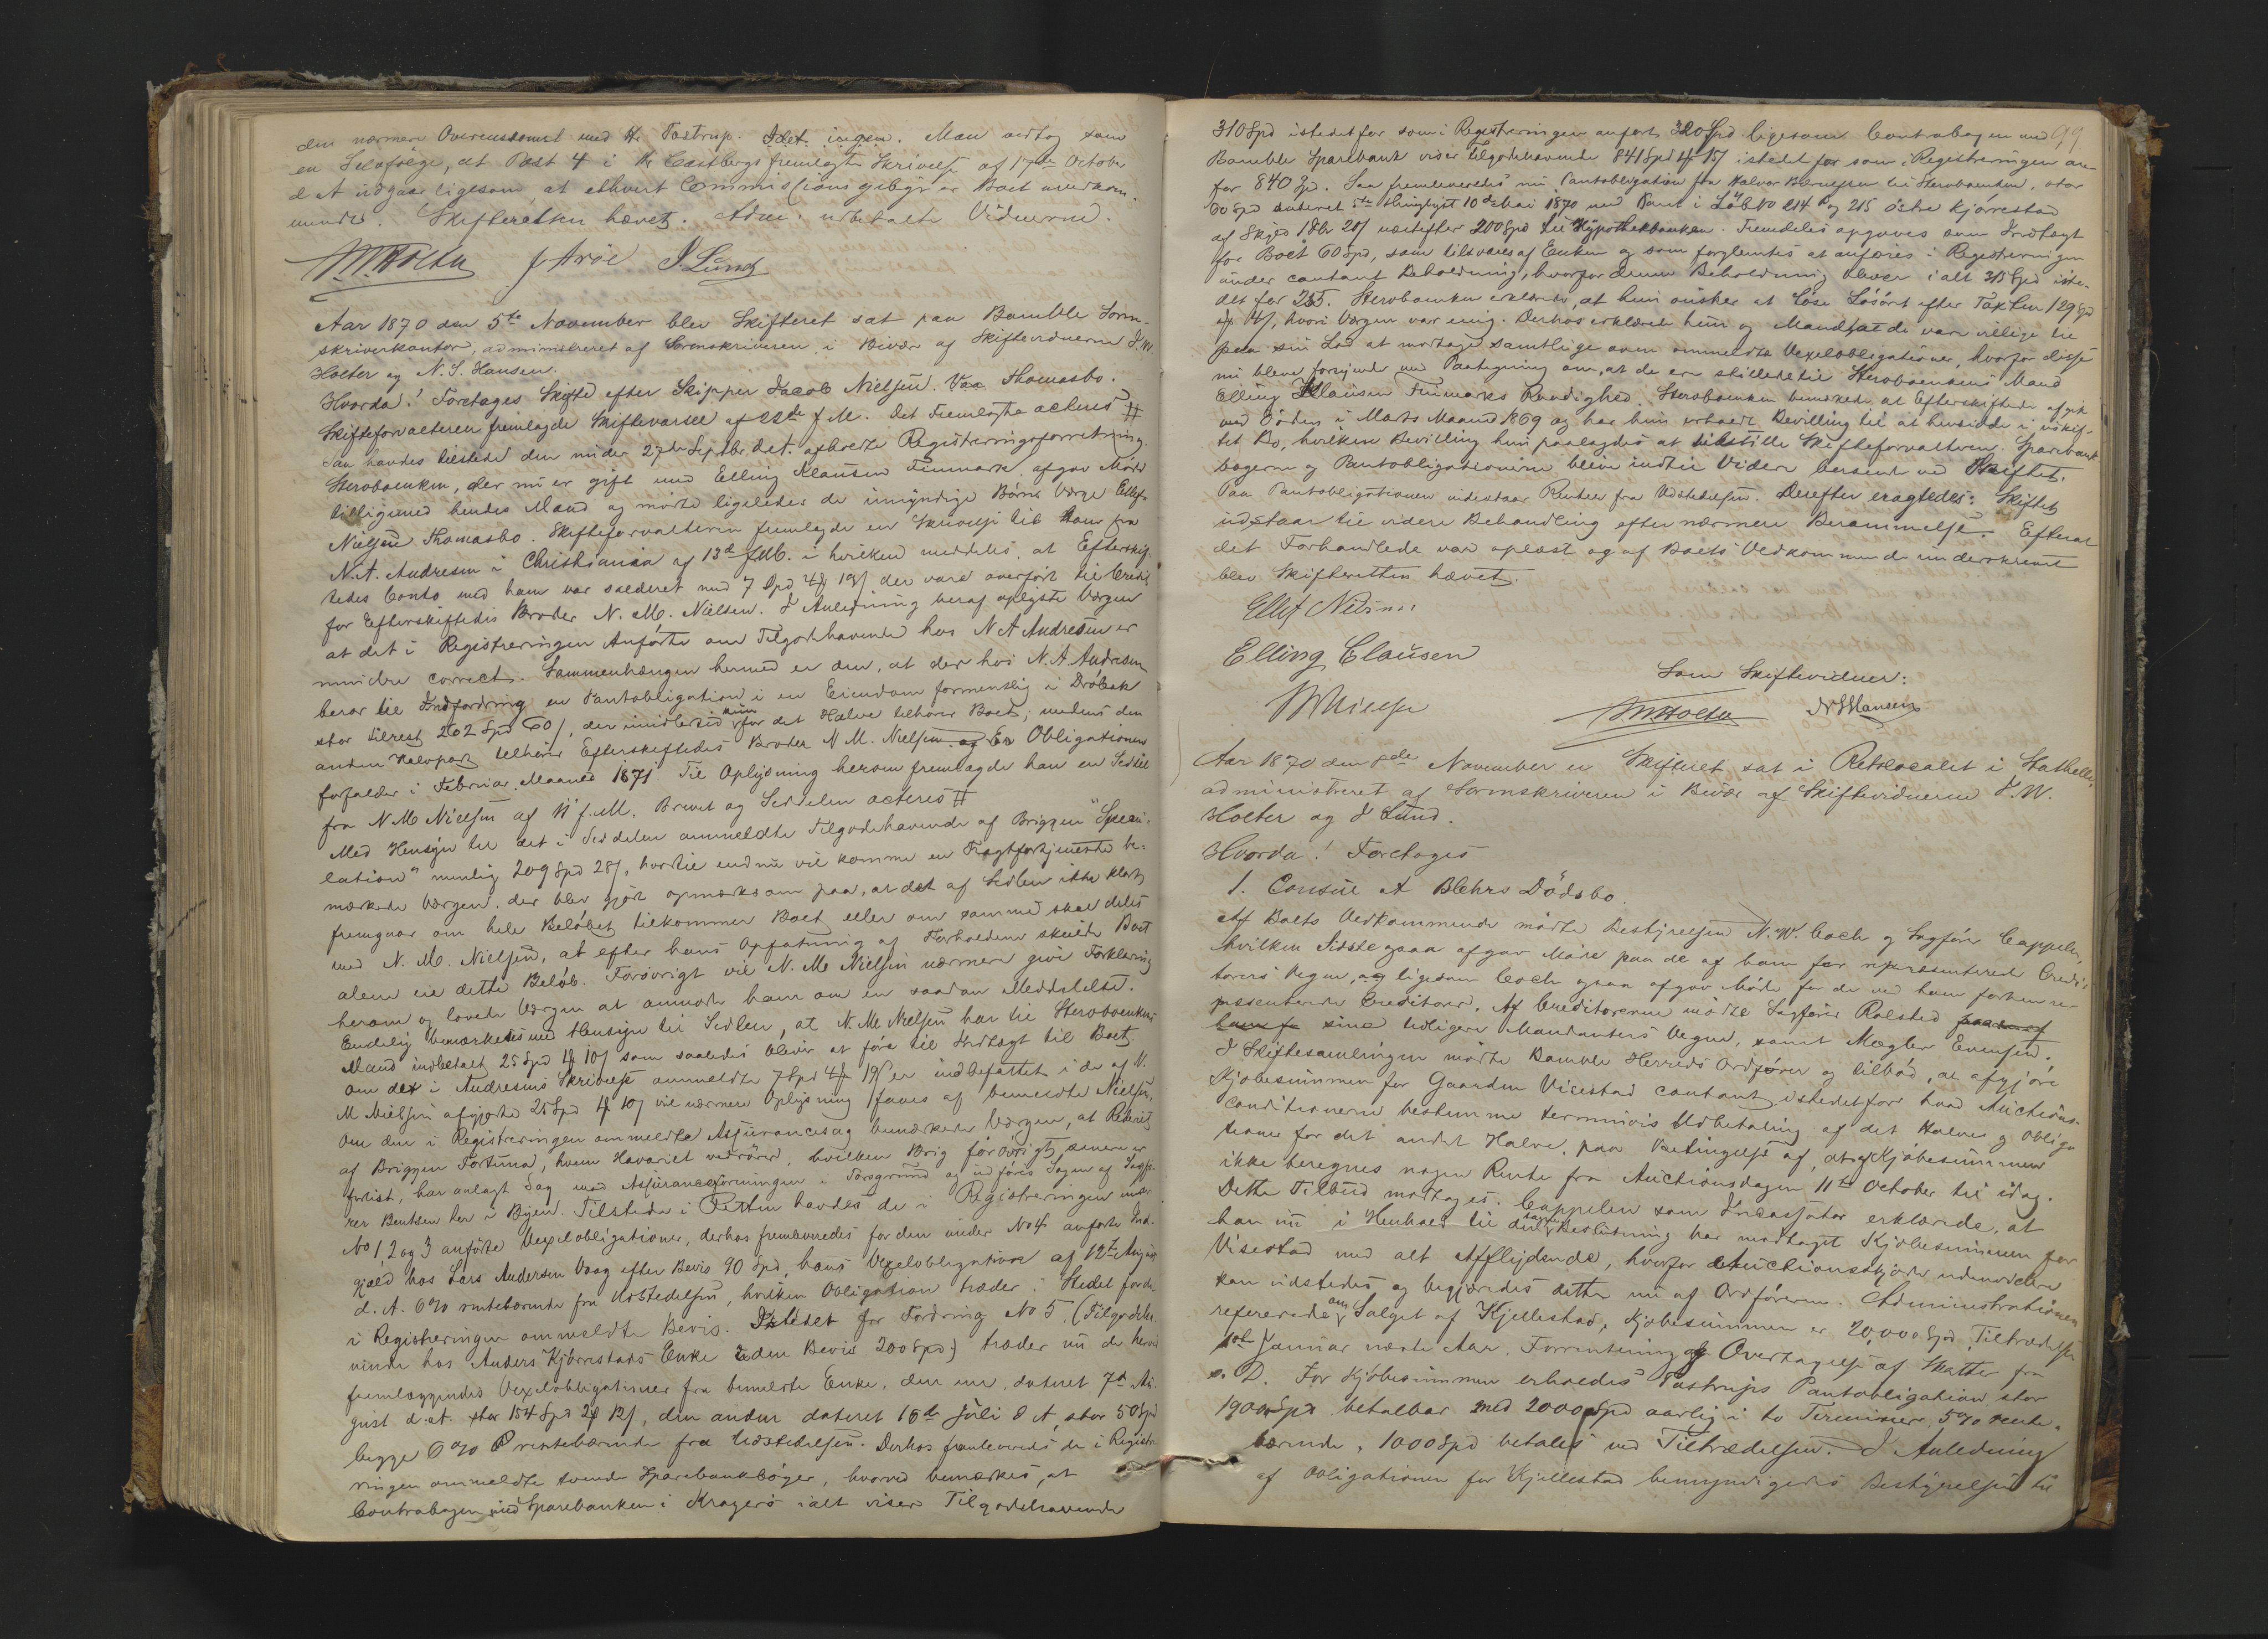 den nærmere Overenskomst med Hr. Tostrup. Idet ingen. Man vedtog som
en Selvfølge, at Post 4 i Hr Castbergs fremlagte Skrivelse af 17de October
d. A udgaar ligesom, at ethvert Commissionsgebyr er Boet uvedkom-
mende. Skifteretten hævet. Adm. udbetalte Vidnerne.
J Arøe J. Lund
Aar 1870 den 5te November blev Skifteret sat paa Bamble Soren-
skriverkontor, administreret af Sorenskriveren i Bivær af Skiftevidnerne J. W.
Holter og N. S. Hansen.
Hvorda! Foretages Skifte efter Skipper Jacob Nielsen Vaa Thomasbo.
Skifteforvalteren fremlagde Skiftevarsel af 22de f M. Det Fremlagte acteres #
Saa havdes tilstede den under 27de Septbr. d. A. afholdte Registreringsforretning.
Sterboenken, der nu er gift med Elling Klausen Finmark, afgav Møde
tilligemed hendes Mand og mødte ligeledes de umyndige Børns Værge Ellef
Nielsen Thomasbo. Skifteforvalteren fremlagde en Skrivelse til ham fra
N. A. Andresen i Christiania af 13de f. M. i hvilken meddeles, at Efterskif-
tedes Conto med ham var salderet med 7 Spd 4 # 19 / der vare overført til Credit
for Efterskiftedes Broder N. M. Nielsen. I Anledning heraf oplyste Værgen
at det i Registreringen Anførte om Tilgodehavende hos N A Andresen er
mindre correct. Sammenhængen hermed er den, at der hos N. A. Andresen
beror til Indfordring en Pantobligation i en Eiendom formentlig i Drøbak
stor tilrest 202 Spd 60 /, der imidlertid kun for det Halve tilhører Boet, medens den
anden Halvpart tilhører Efterskiftedes Broder N M. Nielsen. Obligationen
forfalder i Februar Maaned 1871. Til Oplysning herom fremlagde han en Seddel
fra N M Nielsen af 11 f. M. Brevet og Seddelen acteres #
Med Hensyn til det i Seddelen ommeldte Tilgodehavende af Briggen "Specu-
lation" nemlig 209 Spd 28 /, hvortil endnu vil komme en Fragtfortjeneste be-
mærkede Værgen, der blev gjort opmærksom paa, at det af Sedlen ikke klart
fremgaar om hele Beløbet tilkommer Boet eller om samme skal deles
med N. M. Nielsen, at efter hans Opfatning af Forholdene skulde Boet
alene eie dette Beløb. Forøvrigt vil N. M Nielsen nærmere give Forklaring
herom og lovede Værgen at anmode ham om en saadan Meddelelse.
Endelig bemærkedes med Hensyn til Sedlen, at N. M Nielsen har til Sterboenkens
Mand indbetalt 25 Spd 4 # 10 / som saaledes bliver at føre til Indtægt til Boet.
Om det i Andresens Skrivelse ommeldte 7 Spd 4 # 19 / er indbefattet i de af N.
M Nielsen afgjorte 25 Spd 4 # 10 / vil nærmere Oplysning faaes af bemeldte Nielsen.
Om den i Registreringen ommeldte Assurancesag bemærkede Værgen, at Rederiet
af Briggen Fortuna, hvem Havariet vedrører, hvilken Brig forøvrigt senere er
forlist, har anlagt Sag mod Assuranceforeningen i Porsgrund og udføres Sagen af Sagfø-
rer Bentsen her i Byen. Tilstede i Retten havdes de i Registreringen under
No 1, 2 og 3 anførte Vexelobligationer, derhos fremleveredes for den under No 4 anførte Ind-
gjæld hos Lars Andersen Vaag efter Bevis 90 Spd, hans Vexelobligation af 12te August
d. A. 6% rentebærende fra Udstedelsen, hvilken Obligation træder i Stedet for den
i Registreringen ommeldte Bevis. Istedet for Fordring No 5 (Tilgodeha-
vende hos Anders Kjørrestads Enke uden Bevis 200 Spd) træder nu de herved
fremlæggendes Vexelobligationer fra bemeldte Enke, den ene dateret 7de Au-
gust d. A. stor 154 Spd 2 # 12 /, den anden dateret 16de Juli d A, stor 50 Spd
begge 6% rentebærende fra Udstedelsen. Derhos fremleveredes de i Registre-
ringen ommeldte tvende Sparebankbøger, hvorved bemærkes, at
Contrabogen med Sparebanken i Kragerø ialt viser Tilgodehavende
99
310 Spd istedetfor som i Registreringen anført 320 Spd ligesom Contrabogen med
Bamble Sparebank viser Tilgodehavende 841 Spd 4 # 15 / istedet for som i Registreringen an-
før 840 Spd. Saa fremleveredes nu Pantobligation fra Halvor Børresen til Sterboenken, stor
60 Spd dateret 5te thinglyst 10de Mai 1870 med Pant i Løb No 214 og 215 østre Kjørrestad
af Skyld 1 Dlr 20 / næstefter 200 Spd til Hypothekbanken. Fremdeles opgaves som Indtægt
for Boet 60 Spd, som tilsvares af Enken og som forglemtes at anføres i Registreringen
under contant Beholdning, hvorfor denne Beholdning bliver i alt 315 Spd iste-
det for 255. Sterboenken erklærede, at hun ønsker at løse Løsøret efter Taxten 129 Spd
hvori Værgen var enig. Derhos erklærede hun og Mand, at de vare villige til
paa sin Lod at modtage samtlige oven ommeldte Vexelobligationer, hvorfor disse
nu bleve forsynede med Paategning om, at de ere stillede til Sterboenkens Mand
Elling Klausen Finmarks Raadighed. Sterboenken bemærkede at Efterskiftede afgik
ved Døden i Marts Maaned 1869 og har hun erholdt Bevilling til at hensidde i uskif-
tet Bo, hvilken Bevilling hun paalagdes at tilstille Skifteforvalteren. Sparebank-
bøgerne og Pantobligationerne bleve indtil Videre beroende ved Skiftet.
Paa Pantobligationen indestaar Renter fra Udstedelsen. Derefter eragtedes: Skiftet
udstaar til videre Behandling efter nærmere Berammelse. Efterat
det Forhandlede var oplæst og af Boets Vedkommende underskrevet
blev Skifteretten hævet.
Ellef Nielsen
Elling Clausen
Som Skiftevidner:
N S Hansen
Aar 1870 den 8de November er Skifteret sat i Retslocalet i Stathelle,
administreret af Sorenskriveren i Bivær af Skiftevidnerne J. W.
Holter og J Lund.
Hvorda! Foretages
1. Consul A Blehrs Dødsbo.
Af Boets Vedkommende mødte Bestyrelsen N. W. Coch og Sagfører Cappelen,
hvilken Sidste ogsaa afgav Møde paa de af ham før repræsenterede Credi-
torers Vegne, og ligesom Coch ogsaa afgav Møde for de ved ham forhen re-
præsenterede Creditorer. Af Creditorerne mødte Sagfører Rolsted
sine tidligere Mandanters Vegne, samt Mægler Evensen.
I Skiftesamlingen mødte Bamble Herreds Ordfører og tilbød, at afgjøre
Kjøbesummen for Gaarden Visestad contant istedetfor hvad Auctions-
conditionerne bestemme terminvis Udbetaling af det Halve og Obliga-
tioner for det andet Halve, paa Betingelse af, at af Kjøbesummen
ikke beregnes nogen Rente fra Auctionsdagen 11te October til idag.
Dette Tilbud modtages. Cappelen som Incassator erklærede, at
han nu i Henhold til den tagne Beslutning har modtaget Kjøbesummen for
Visestad med alt Afflydende, hvorfor Auctionsskjøde udenvidere
kan udstedes og begjæredes dette nu af Ordføreren. Administrationen
refererede om Salget af Kjellestad, Kjøbesummen er 20,000 Spd, Tiltrædelse
1ste Januar næste Aar. Forrentning og Overtagelse af Skatter fra
s. D. For Kjøbesummen erholdes Tostrups Pantobligation stor
19000 Spd betalbar med 2000 Spd aarlig i to Terminer, 5% rente-
bærende, 1000 Spd betales ved Tiltrædelsen. I Anledning
af Obligationen for Kjellestad bemyndigedes Bestyrelsen til